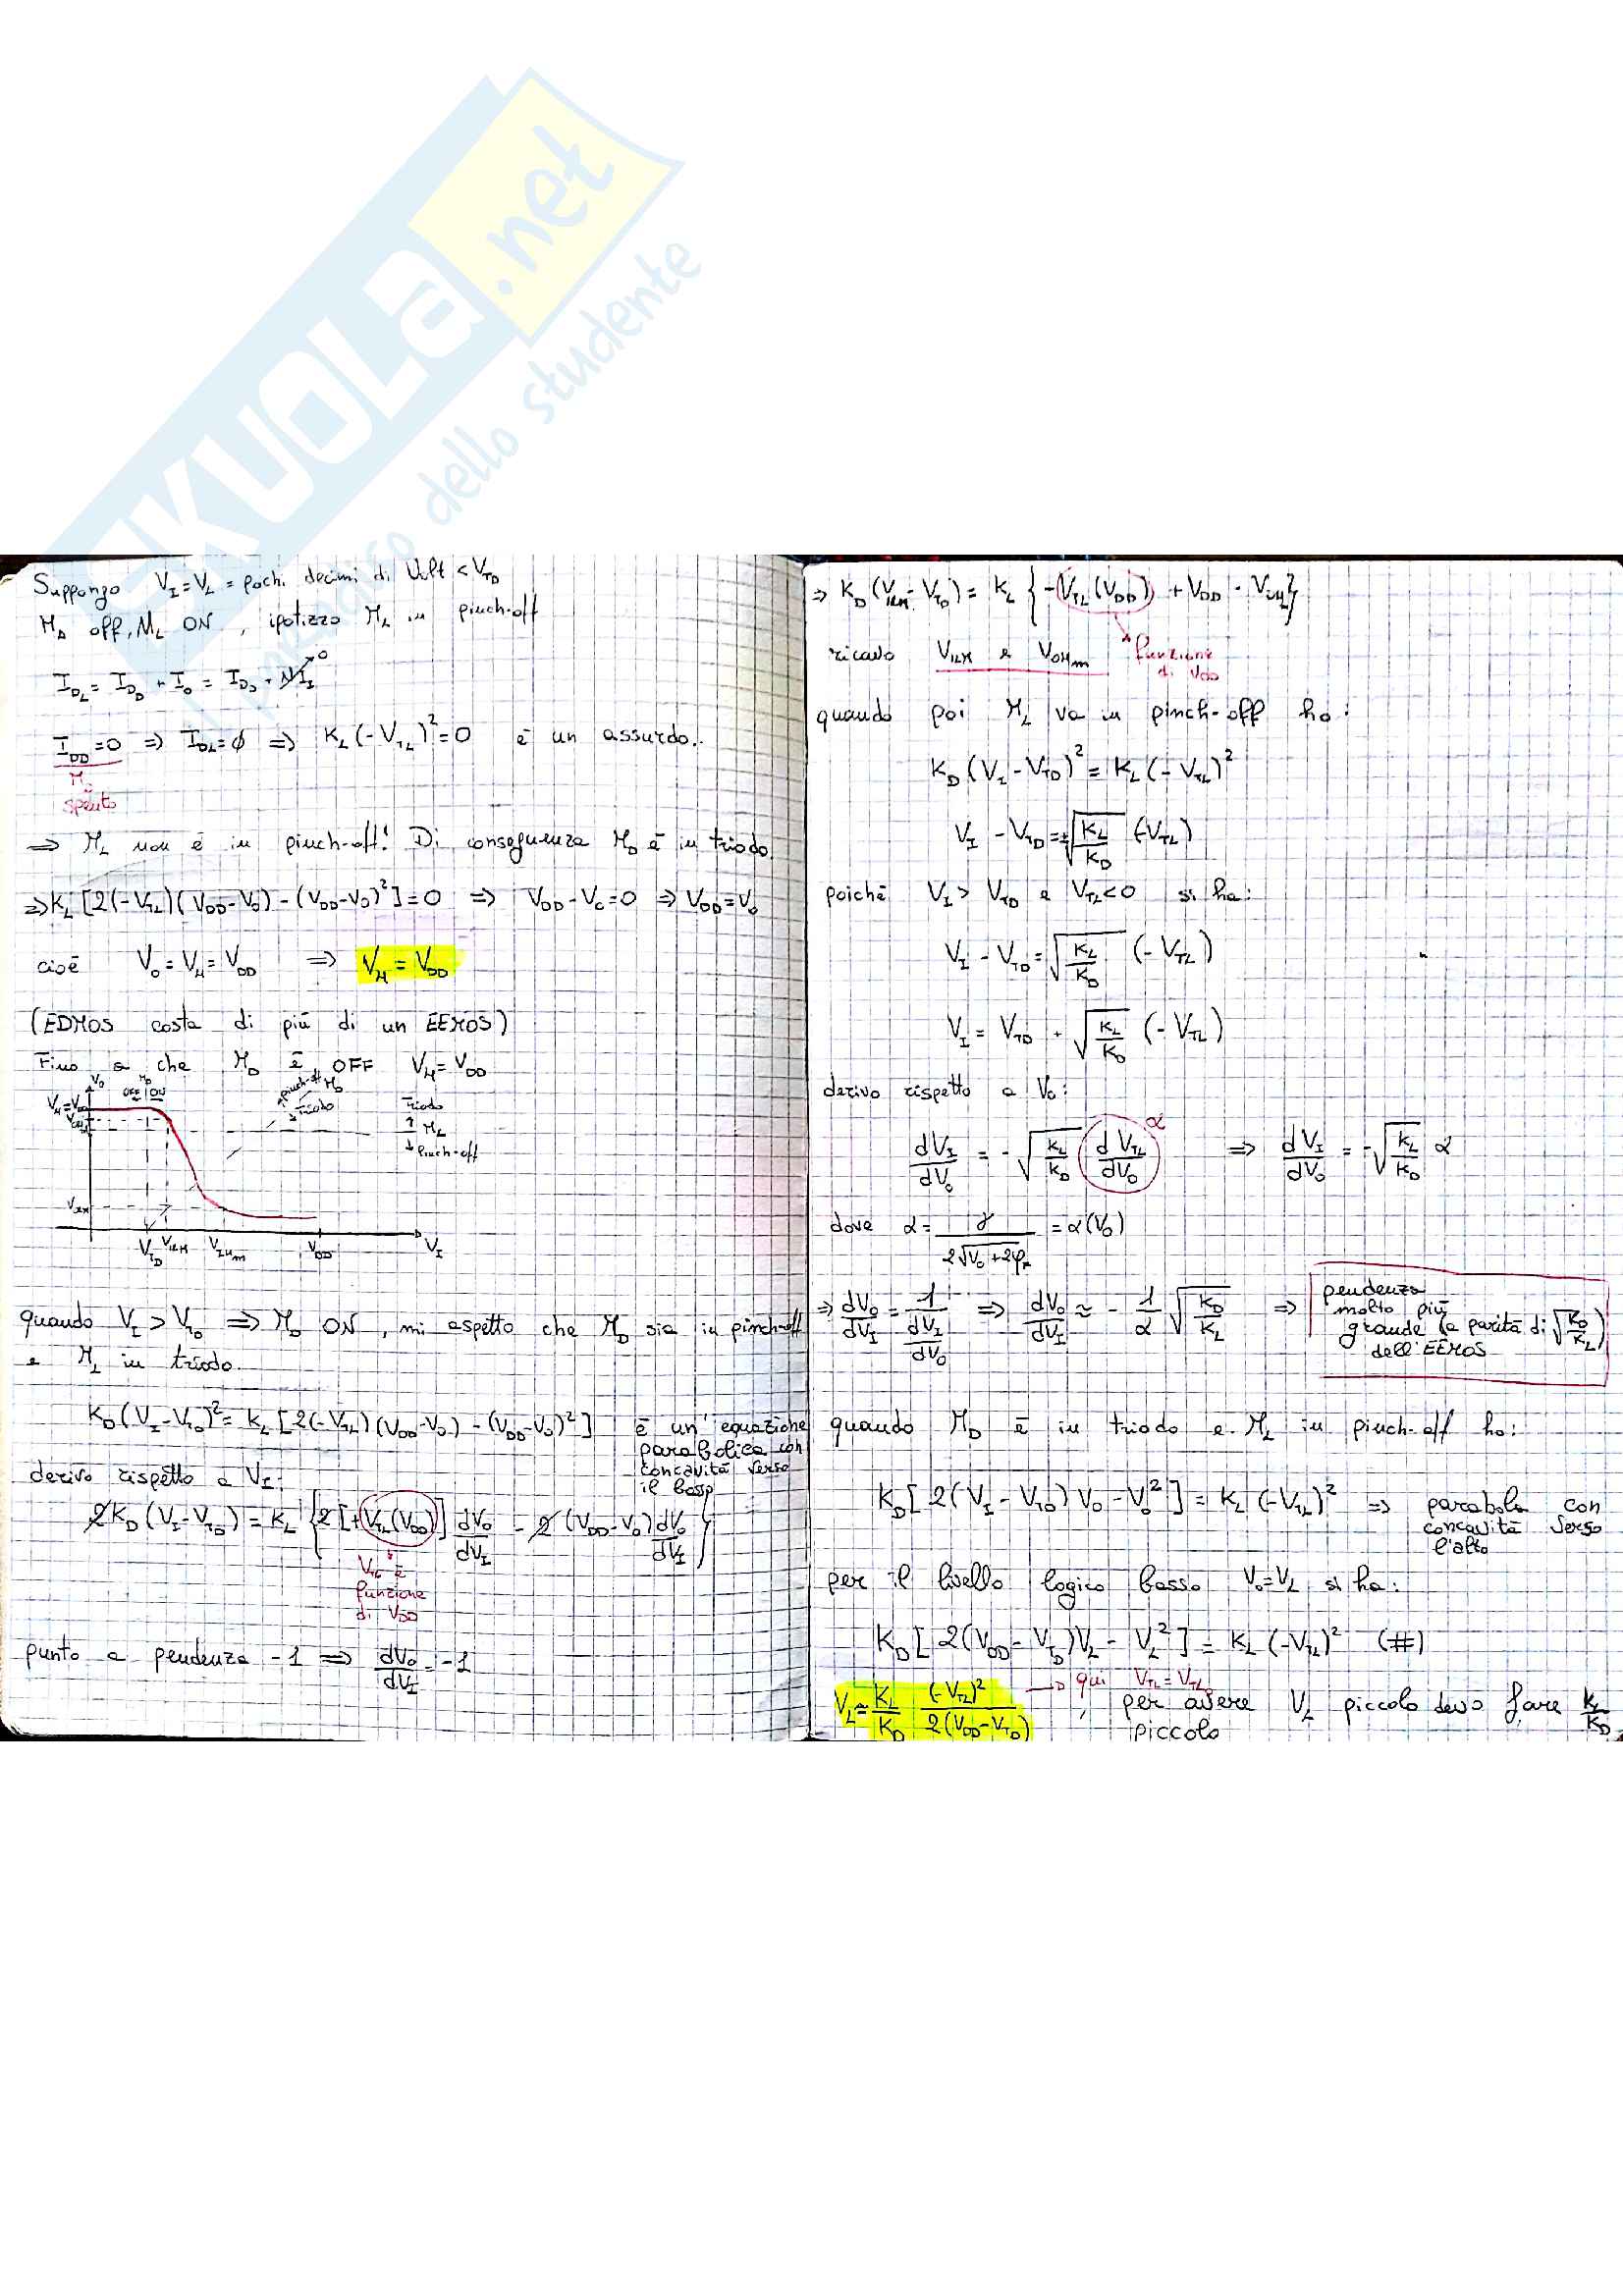 SKUOLA.net
il paradiso dello studente
Suppongo V_I = V_L = pochi decimi di Volt < V_TD
M_D off, M_L ON, ipotizzo M_L in pinch-off
I_DL = I_DD + I_O = I_DD + N I_I → 0
I_DD = 0 ⇒ I_DL = ∅ ⇒ K_L (-V_TL)² = 0 è un assurdo.
M_D
spento
⇒ M_L non è in pinch-off! Di conseguenza M_D è in triodo.
⇒ K_L [2(-V_TL)(V_DD-V_O) - (V_DD-V_O)²] = 0 ⇒ V_DD - V_O = 0 ⇒ V_DD = V_O
cioè V_O = V_H = V_DD ⇒ V_H = V_DD
(EDMOS costa di più di un EEMOS)
Fino a che M_D è OFF V_H = V_DD
V_O
M_D
OFF ON
pinch-off M_D
triodo
Triodo
↑ M_L
↓ Pinch-off
V_H = V_DD
V_TD V_ILM V_IHm V_DD V_I
quando V_I > V_TD ⇒ M_D ON, mi aspetto che M_D sia in pinch-off
e M_L in triodo.
K_D (V_I - V_TD)² = K_L [2(-V_TL)(V_DD-V_O) - (V_DD-V_O)²] è un'equazione
parabolica con
concavità verso
il basso
derivo rispetto a V_I:
2K_D (V_I - V_TD) = K_L {2[+V_TL(V_DD)] dV_O/dV_I - 2(V_DD-V_O) dV_O/dV_I}
V_TL è
funzione
di V_DD
punto a pendenza -1 ⇒ dV_O/dV_I = -1
⇒ K_D (V_ILM - V_TD) = K_L {-V_TL(V_DD) + V_DD - V_OHm}
ricavo V_ILM e V_OHm
funzione
di V_DD
quando poi M_L va in pinch-off ho:
K_D (V_I - V_TD)² = K_L (-V_TL)²
V_I - V_TD = ±√(K_L/K_D) (-V_TL)
poichè V_I > V_TD e V_TL < 0 si ha:
V_I - V_TD = √(K_L/K_D) (-V_TL)
V_I = V_TD + √(K_L/K_D) (-V_TL)
derivo rispetto a V_O:
dV_I/dV_O = -√(K_L/K_D) dV_TL/dV_O α ⇒ dV_I/dV_O = -√(K_L/K_D) α
dove α = γ/(2√(V_O+2φ_F)) = α(V_O)
⇒ dV_O/dV_I = 1/(dV_I/dV_O) ⇒ dV_O/dV_I ≈ -1/α √(K_D/K_L) ⇒
pendenza
molto più
grande (a parità di √(K_D/K_L))
dell'EEMOS
quando M_D è in triodo e M_L in pinch-off ho:
K_D [2(V_I - V_TD)V_O - V_O²] = K_L (-V_TL)² ⇒ parabola con
concavità verso
l'alto
per il livello logico basso V_O = V_L si ha:
K_D [2(V_DD - V_TD)V_L - V_L²] = K_L (-V_TL)² (#)
→ qui V_TL = V_TL0
V_L ≈ K_L/K_D (-V_TL)²/(2(V_DD-V_TD)), per avere V_L piccolo devo fare K_L/K_D
piccolo